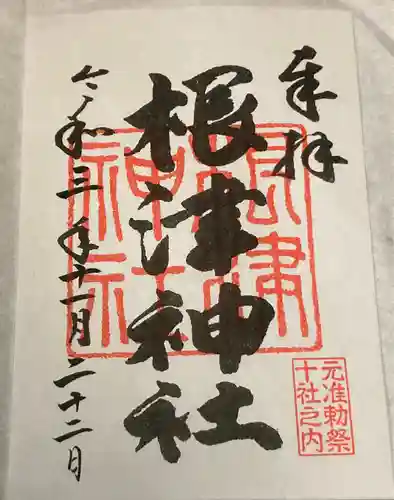 奉拝
根津神社
令和三年十一月二十二日
根津神社
元准勅祭
十社之内